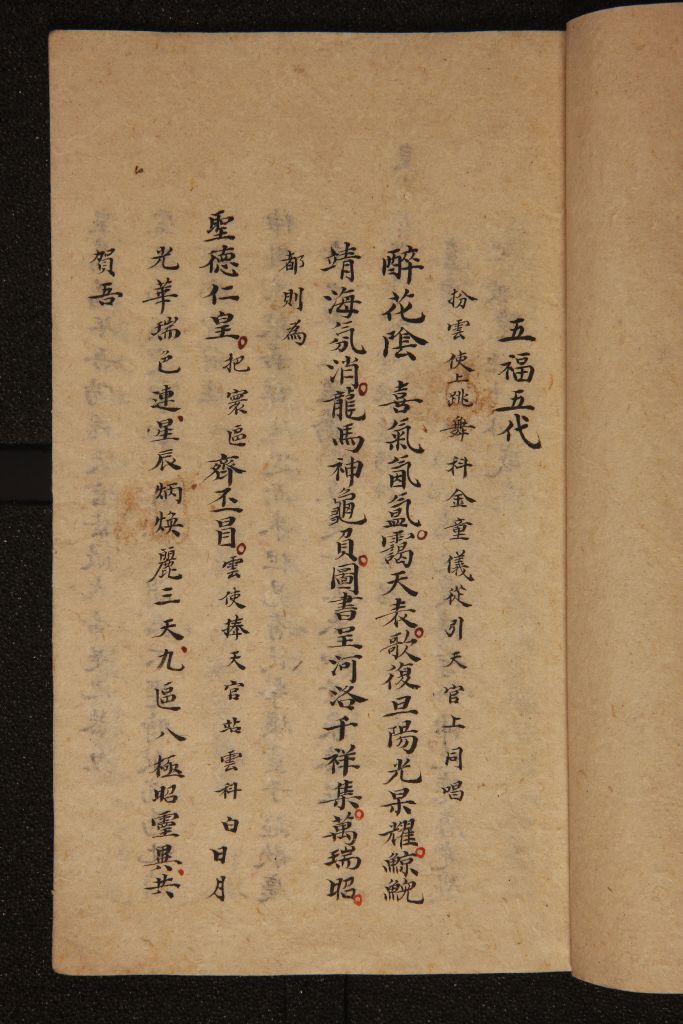 五福五代
扮雲使上跳舞科金童儀從引天官上同唱
醉花陰　喜氣氤氲。靄天表。歌復旦陽光杲耀。鯨鯢
靖海氛消。龍馬神龜負。圖書呈河洛千祥集。萬瑞昭。
都則為
聖德仁皇。把寰區齊丕冒。雲使捧天官站雲科白日月
光華瑞色連、星辰炳煥麗三天、九區八極昭靈異、共
賀吾